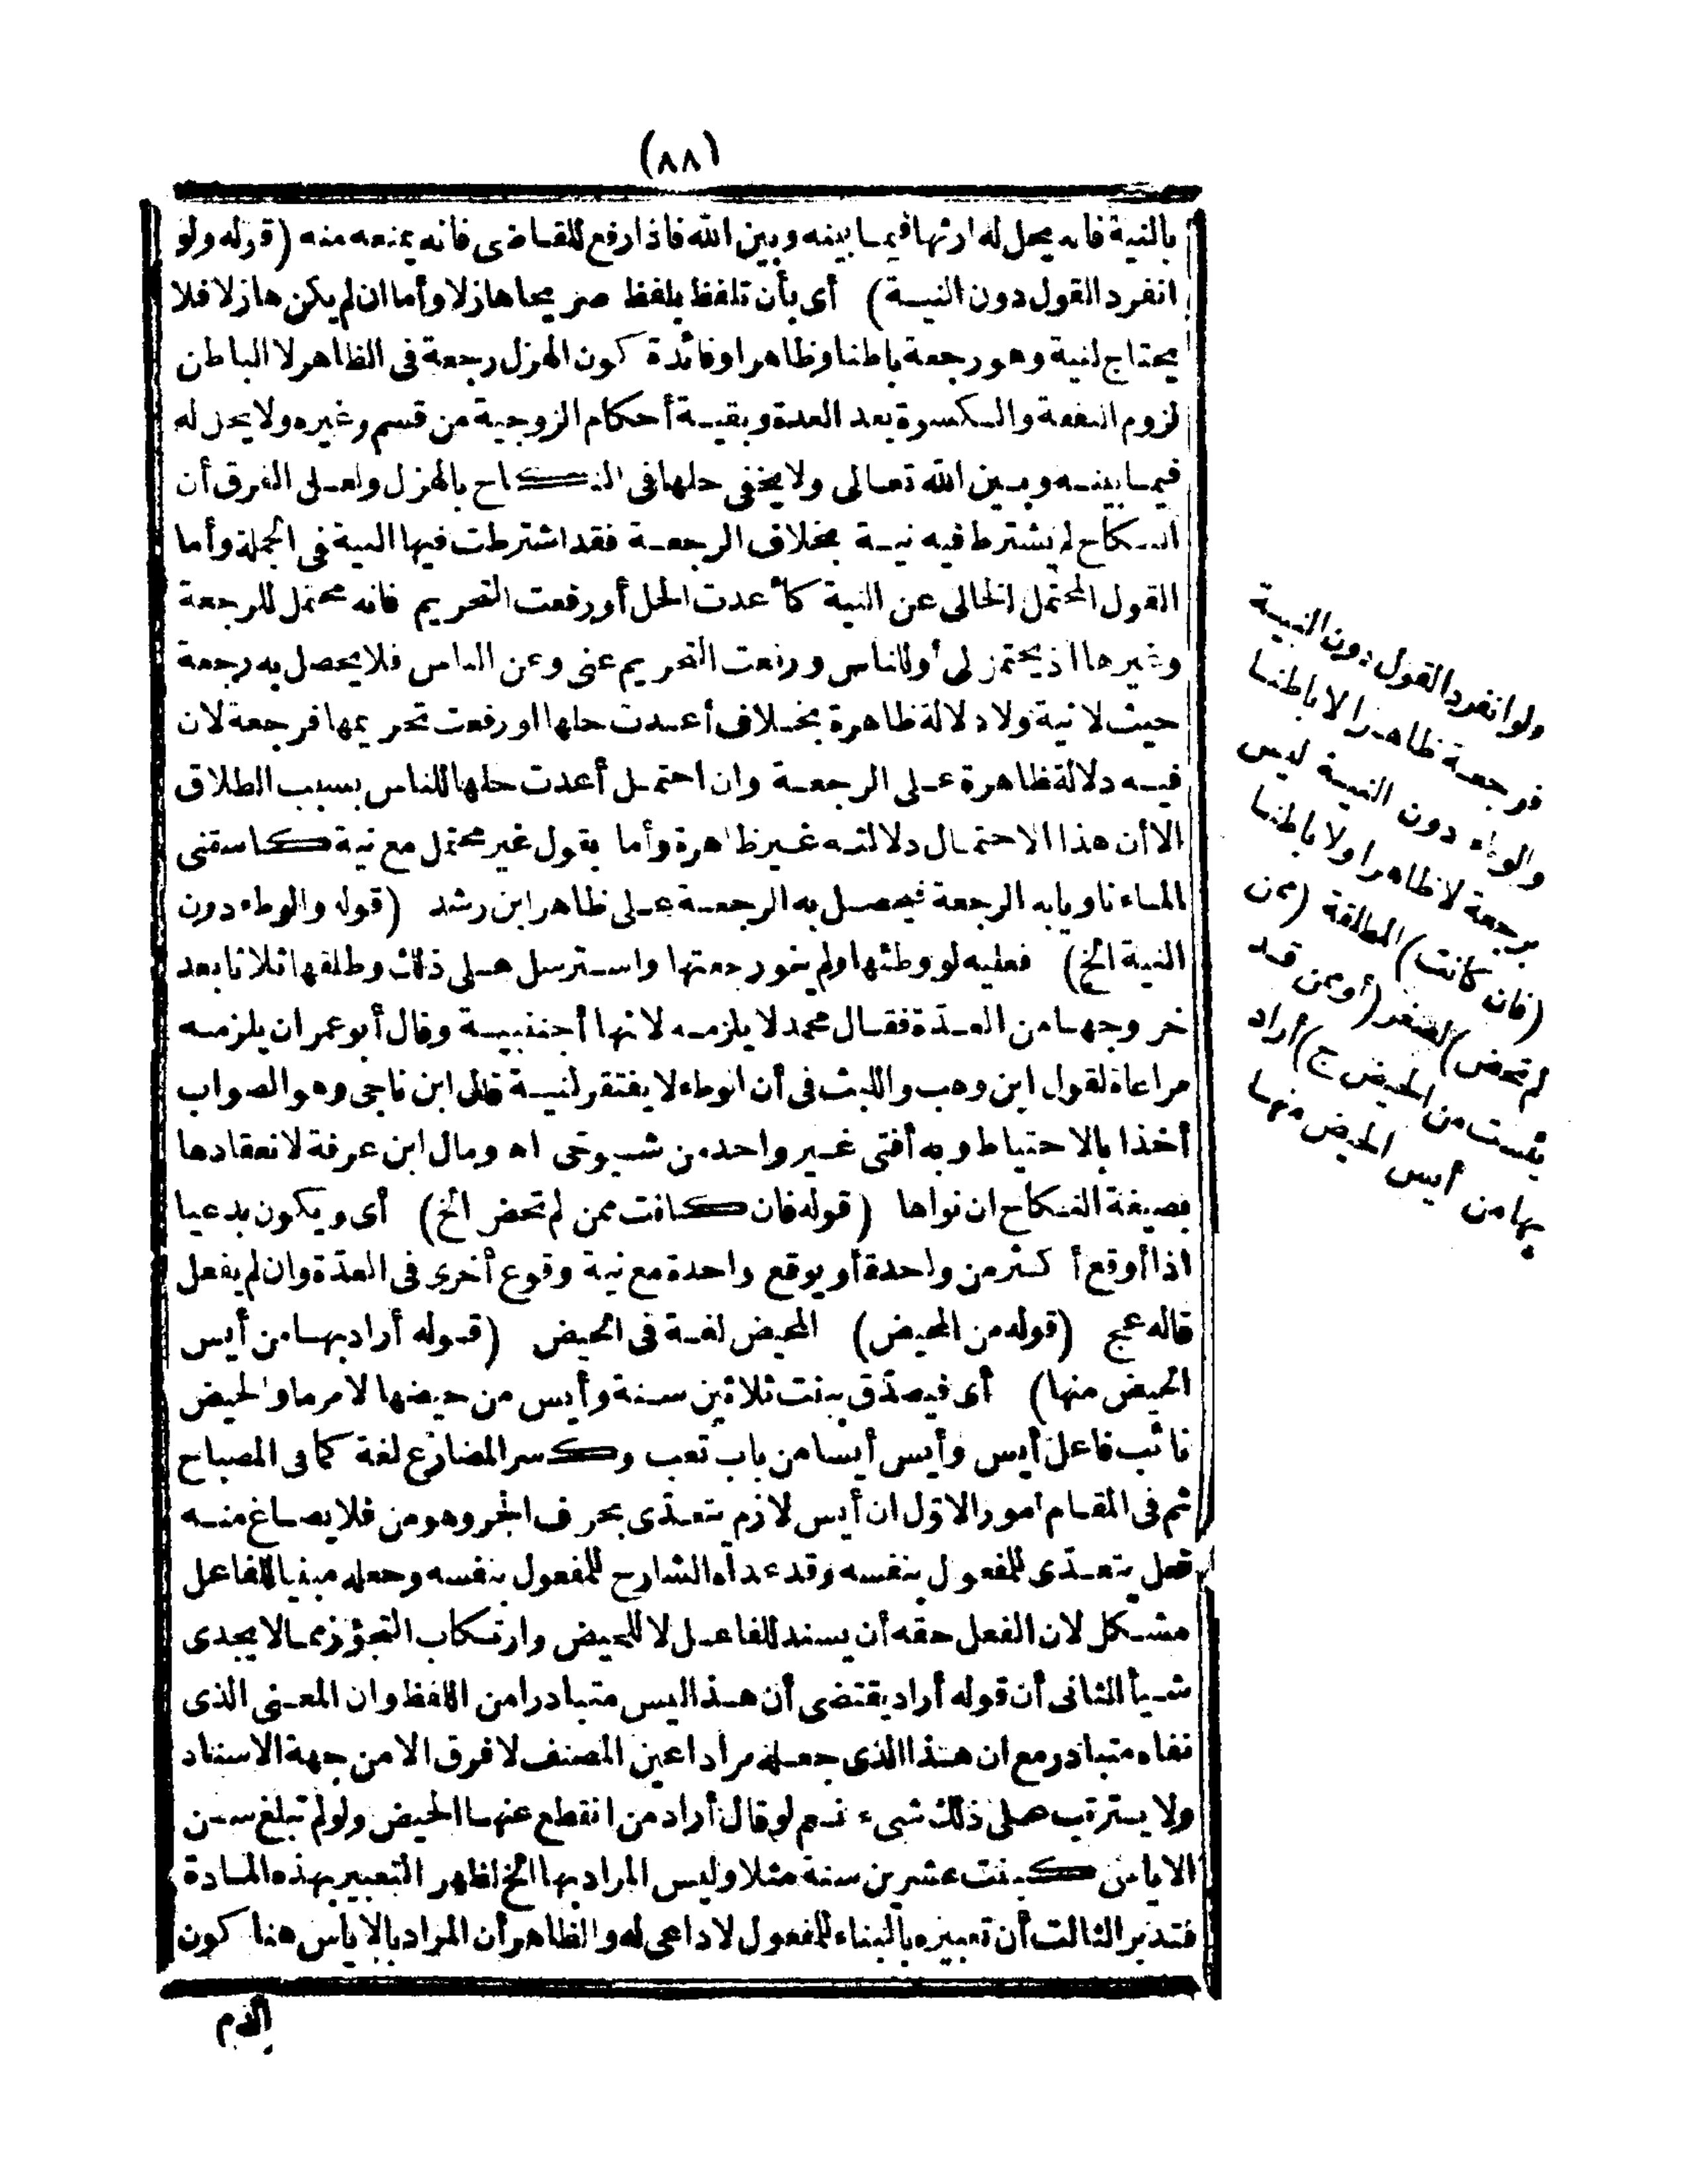 (٨٨)
بالنية فانه يحل له ارثها فيما بينه وبين الله فاذا رفع للقاضى فانه يمنعه منه (قوله ولو
انفرد القول دون النية) أى بأن تلفظ بلفظ صريحا هازلا وأما ان لم يكن هازلا فلا
يحتاج لنية وهو رجعة باطنا وظاهرا وفائدة كون الهزل رجعة فى الظاهر لا الباطن
لزوم النفقة والكسوة بعد العدة وبقية أحكام الزوجية من قسم وغيره ولا يحل له
فيما بينه وبين الله تعالى ولا يخفى حلها فى النكاح بالهزل ولعل الفرق أن
النكاح لم يشترط فيه نية بخلاف الرجعة فقد اشترطت فيها النية فى الجملة وأما
القول المحتمل الخالى عن النية كأعدت الحل أو رفعت التحريم فانه محتمل للرجعة
وغيرها اذ يحتمل لى أو للناس ورفعت التحريم عنى وعن الناس فلا يحصل به رجعة
حيث لا نية ولا دلالة ظاهرة بخلاف أعدت حلها او رفعت تحريمها فرجعة لان
فيه دلالة ظاهرة على الرجعة وان احتمل أعدت حلها للناس بسبب الطلاق
الا أن هذا الاحتمال دلالته غير ظاهرة وأما بقول غير محتمل مع نية كاسقنى
الماء ناويا به الرجعة فيحصل به الرجعة على ظاهر ابن رشد (قوله والوطء دون
النية الخ) فعليه لو وطئها ولم ينو رجعتها واسترسل على ذلك وطلقها ثلاثا بعد
خروجها من العدّة فقال محمد لا يلزمه لانها أجنبية وقال أبو عمران يلزمه
مراعاة لقول ابن وهب والليث فى أن الوطء لا يفتقر لنية قال ابن ناجى وهو الصواب
أخذا بالاحتياط وبه أفتى غير واحد من شيوخى اه ومال ابن عرفة لانعقادها
بصيغة النكاح ان نواها (قوله فان كانت ممن لم تحض الخ) أى ويكون بدعيا
اذا أوقع أكثر من واحدة أو يوقع واحدة مع نية وقوع أخرى فى العدّة وان لم يفعل
قاله عج (قوله من المحيض) المحيض لغة فى الحيض (قوله أراد بها من أيس
الحيض منها) أى فيصدّق ببنت ثلاثين سنة وأيس من حيضها لامر ما والحيض
نائب فاعل أيس وأيس أيسا من باب تعب وكسر المضارع لغة كما فى المصباح
ثم فى المقام امور الاوّل ان أيس لازم يتعدّى بحرف الجر وهو من فلا يصاغ منه
فعل يتعدّى للمفعول بنفسه وقد عداه الشارح للمفعول بنفسه وجعله مبنيا للفاعل
مشكل لان الفعل حقه أن يسند للفاعل لا للحيض وارتكاب التجوّز مما لا يجدى
شيأ الثانى أن قوله أراد يقتضى أن هذا ليس متبادرا من اللفظ وان المعنى الذى
نفاه متبادر مع ان هذا الذى جعله مرادا عين المصنف لا فرق الا من جهة الاسناد
ولا يترتب على ذلك شىء نعم لو قال أراد من انقطع عنها الحيض ولو لم تبلغ سن
الاياس كبنت عشرين سنة مثلا وليس المراد بها الخ لظهر التعبير بهذه المادة
فتدبر الثالث أن تعبيره بالبناء للمفعول لا داعى له والظاهر أن المراد بالاياس هنا كون
الدم
ولو انفرد القول دون النية
فرجعة ظاهرا لا باطنا
والوطء دون النية ليس
برجعة لا ظاهرا ولا باطنا
(فان كانت) المطلقة (ممن
لم تحض) لصغر (أو ممن قد
يئست من المحيض ج) أراد
بها من أيس الحيض منها